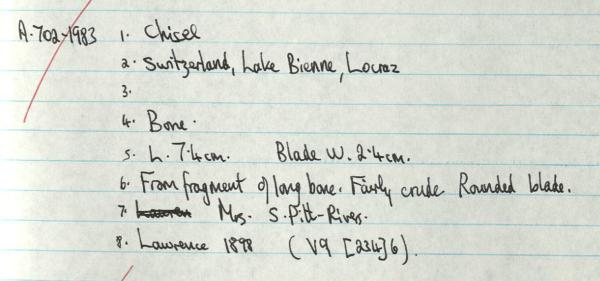 A.702-1983 1. Chisel
2. Switzerland, Lake Bienne, Locraz
3.
4. Bone.
5. L. 7.4cm. Blade W. 2.4cm.
6. From fragment of long bone. Fairly crude Rounded blade.
7. Mrs. S. Pitt-Rivers.
8. Lawrence 1898 (V9 [234]6).